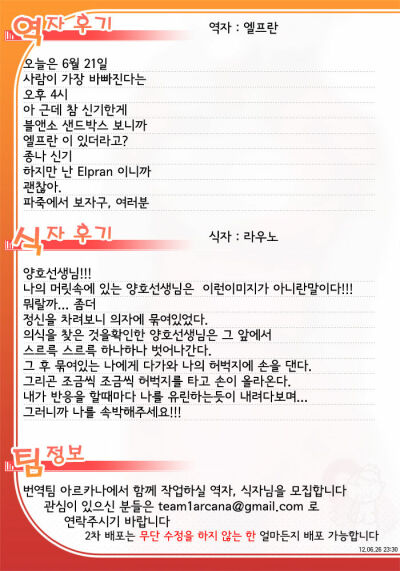 역자 후기
역자 : 엘프란
오늘은 6월 21일
사람이 가장 바빠진다는
오후 4시
아 근데 참 신기한게
블앤소 샌드박스 보니까
엘프란 이 있더라고?
종나 신기
하지만 난 Elpran 이니까
괜찮아.
파죽에서 보자구, 여러분
식자 후기
식자 : 라우노
양호선생님!!!
나의 머릿속에 있는 양호선생님은 이런이미지가 아니란말이다!!!
뭐랄까... 좀더
정신을 차려보니 의자에 묶여있었다.
의식을 찾은 것을확인한 양호선생님은 그 앞에서
스르륵 스르륵 하나하나 벗어나간다.
그 후 묶여있는 나에게 다가와 나의 허벅지에 손을 댄다.
그리곤 조금씩 조금씩 허벅지를 타고 손이 올라온다.
내가 반응을 할때마다 나를 유린하는듯이 내려다보며...
그러니까 나를 속박해주세요!!!
팀 정보
번역팀 아르카나에서 함께 작업하실 역자, 식자님을 모집합니다
관심이 있으신 분들은 team1arcana@gmail.com 로
연락주시기 바랍니다
2차 배포는 무단 수정을 하지 않는 한 얼마든지 배포 가능합니다
12.06.26 23:30